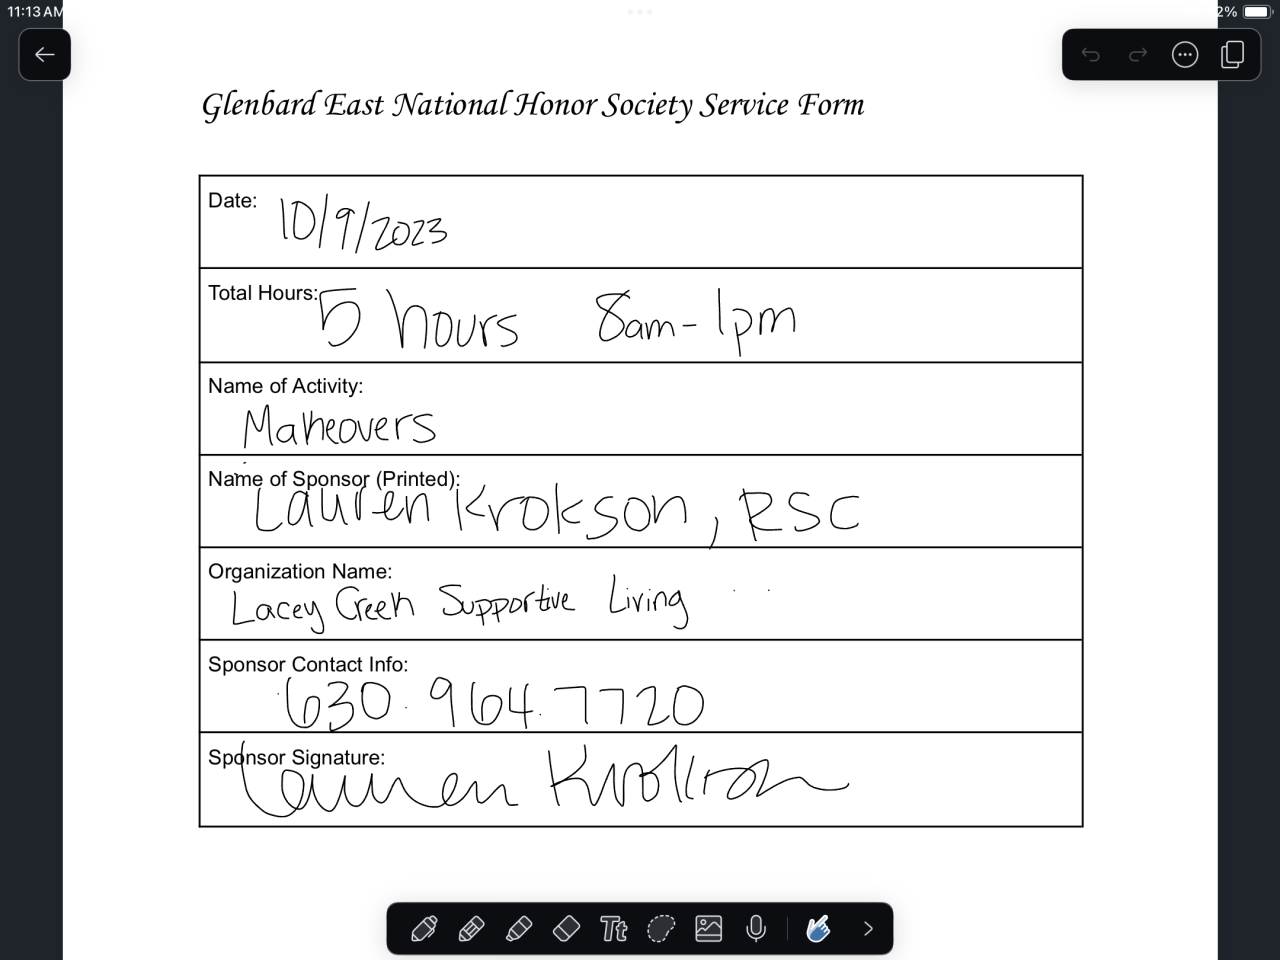 11:13 AM
2%
Glenbard East National Honor Society Service Form
Date: 10/9/2023
Total Hours: 5 hours 8am - 1pm
Name of Activity:
Makeovers
Name of Sponsor (Printed):
Lauren Krokson, RSC
Organization Name:
Lacey Creek Supportive Living
Sponsor Contact Info:
630.964.7720
Sponsor Signature:
Lauren Krokson
Tt